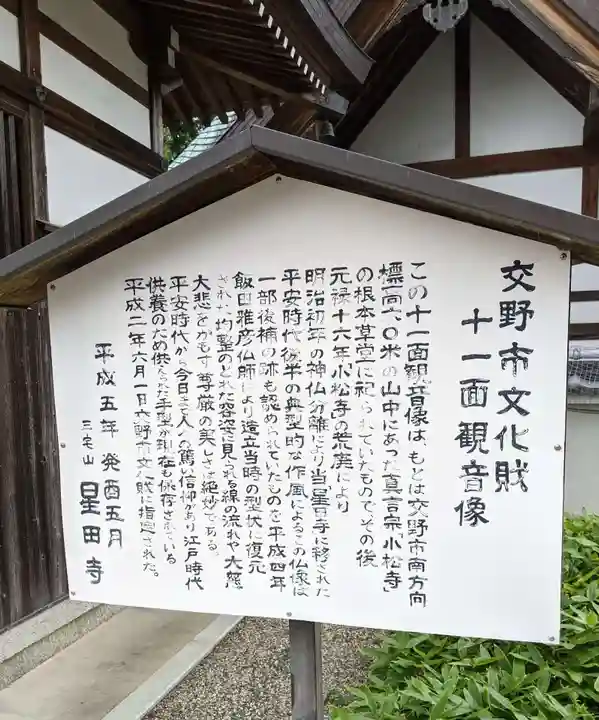 交野市文化財
十一面観音像
この十一面観音像は、もとは交野市南方向
標高六〇米の山中にあった真言宗「小松寺」
の根本草堂に祀られていたもので、その後
元禄十六年小松寺の荒廃により
明治初年の神仏分離により当「星田寺」に移された
平安時代後半の典型的な作風によるこの仏像は
一部後補の跡も認められていたものを平成四年
飯田雅彦仏師により造立当時の型状に復元
された 均整のとれた容姿に見られる線の流れや 大慈
大悲をかもす尊厳の美しさは絶妙である。
平安時代から今日まで人々の篤い信仰があり江戸時代
供養のため供えられた手型が現在も保存されている
平成二年六月一日交野市文化財に指定された。
平成五年 癸酉五月
三宅山 星田寺